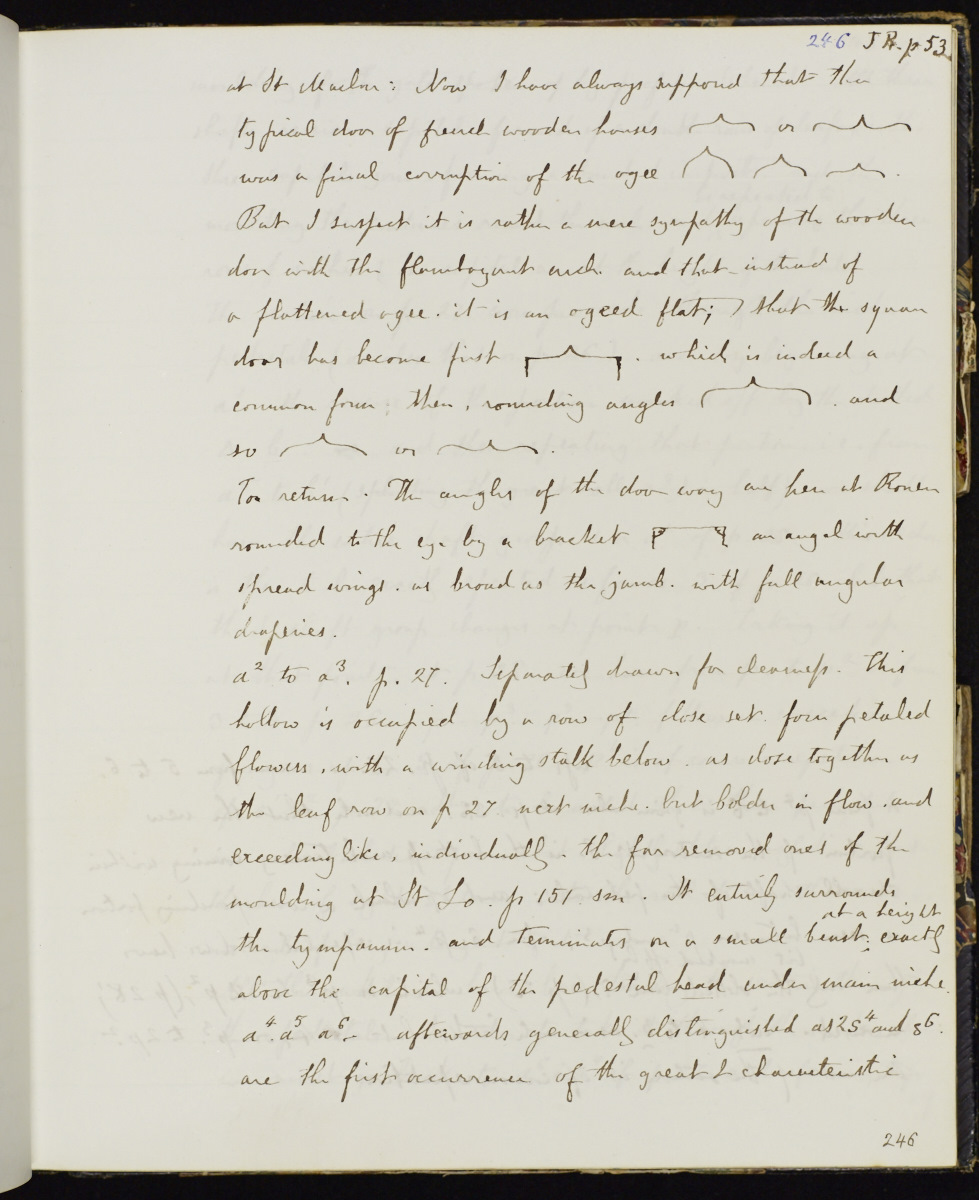 246 JR. p 53
at St Maclou: Now I have always supposed that the
typical door of french wooden houses or
was a final corruption of the ogee
But I suspect it is rather a mere sympathy of the wooden
door with the flamboyant arch. and that instead of
a flattened ogee. it is an ogeed flat; that the square
door has become first . which is indeed a
common form; then, rounding angles . and
so or .
To return. The angles of the door way are here at Rouen
rounded to the eye by a bracket an angel with
spread wings. as broad as the jamb. with full angular
draperies.
a2 to a3. p. 27. Separately drawn for clearness. This
hollow is occupied by a row of close set four petaled
flowers, with a winding stalk below. as close together as
the leaf row on p 27 next niche. but bolder in flow. and
exceeding like, individually. the far removed ones of the
moulding at St Lo. p 151. sm. It entirely surrounds
at a height
the tympanum. and terminates on a small beast; exactly
above the capital of the pedestal head under main niche.
a4. a5 a6.- afterwards generally distinguished as 4 and 6.
are the first occurrence of the great characteristic
246